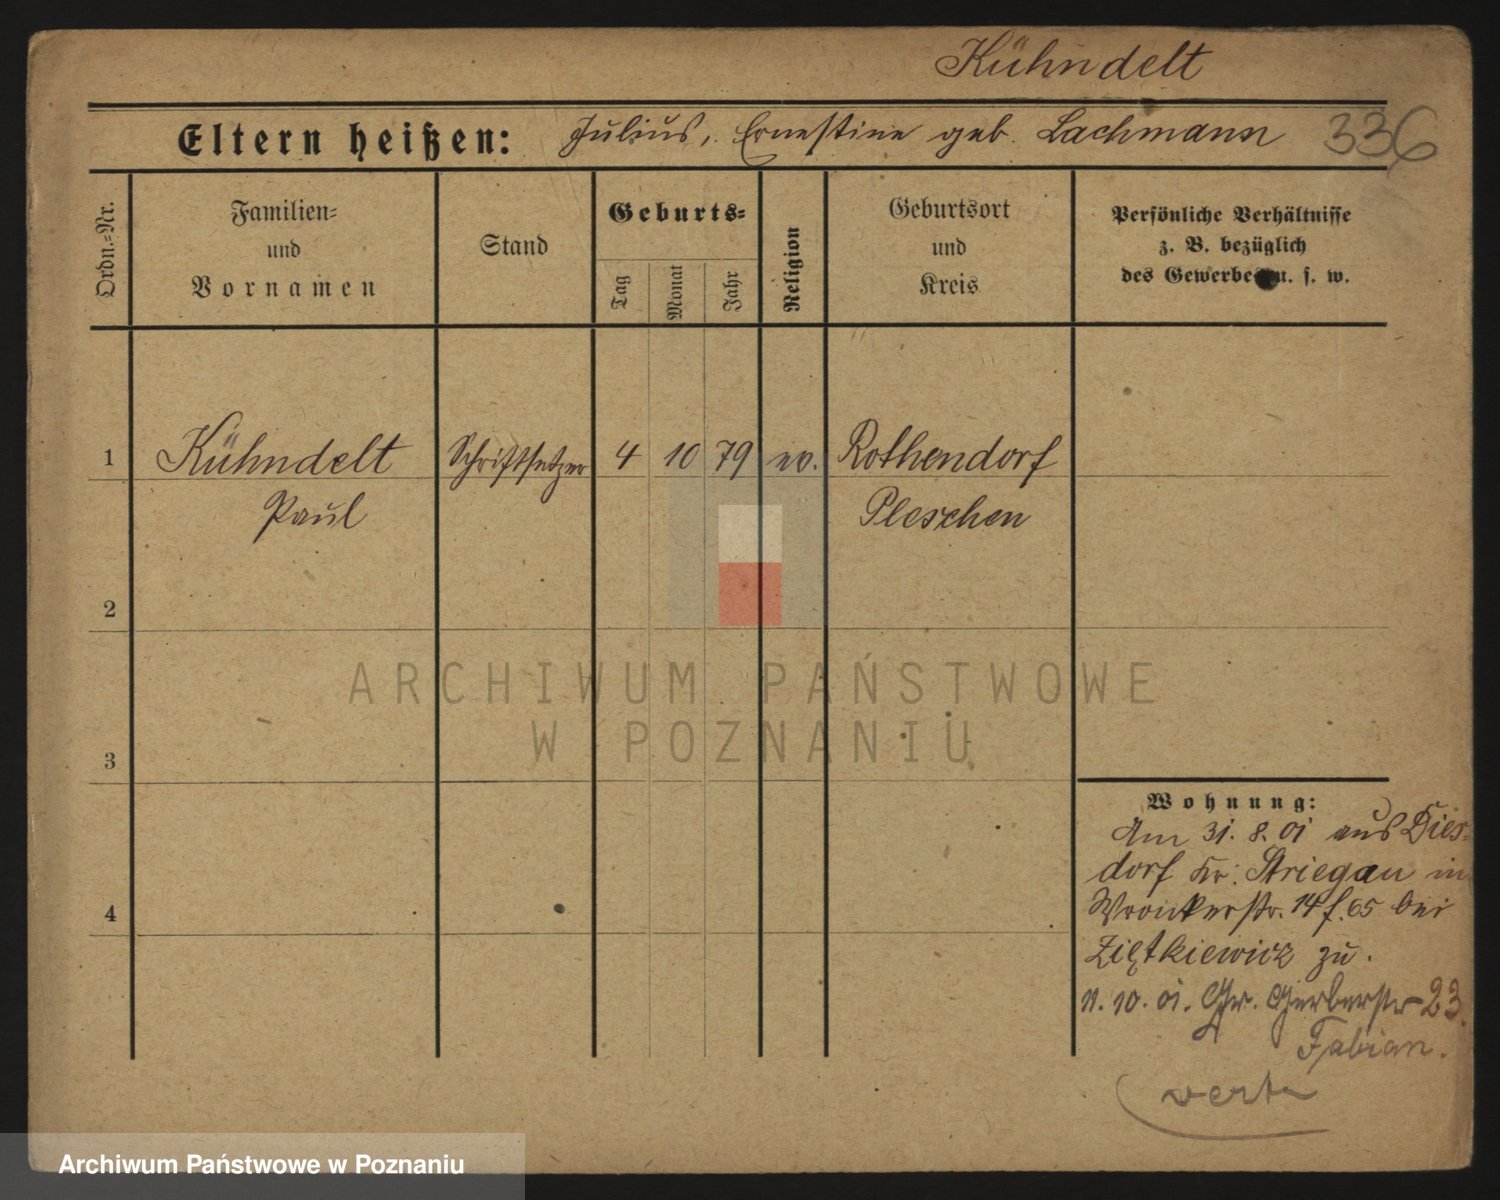 Kühndelt
Eltern heißen: Julius, Ernestine geb. Lachmann 336
Ordn.-Nr.
Familien-
und
Vornamen
Stand
Geburts-
Tag
Monat
Jahr
Religion
Geburtsort
und
Kreis
Persönliche Verhältnisse
z. B. bezüglich
des Gewerbe u. s. w.
1 Kühndelt Schriftsetzer 4 10 79 ev. Rothendorf
Paul Pleschen
2
3
4
Wohnung:
Am 31. 8. 01 aus Dies-
dorf Kr. Striegau in
Wronkerstr. 14 f. 65 bei
Ziętkiewicz zu.
11. 10. 01. Gr. Gerberstr 23.
Fabian.
verte
ARCHIWUM PAŃSTWOWE
W POZNANIU
Archiwum Państwowe w Poznaniu